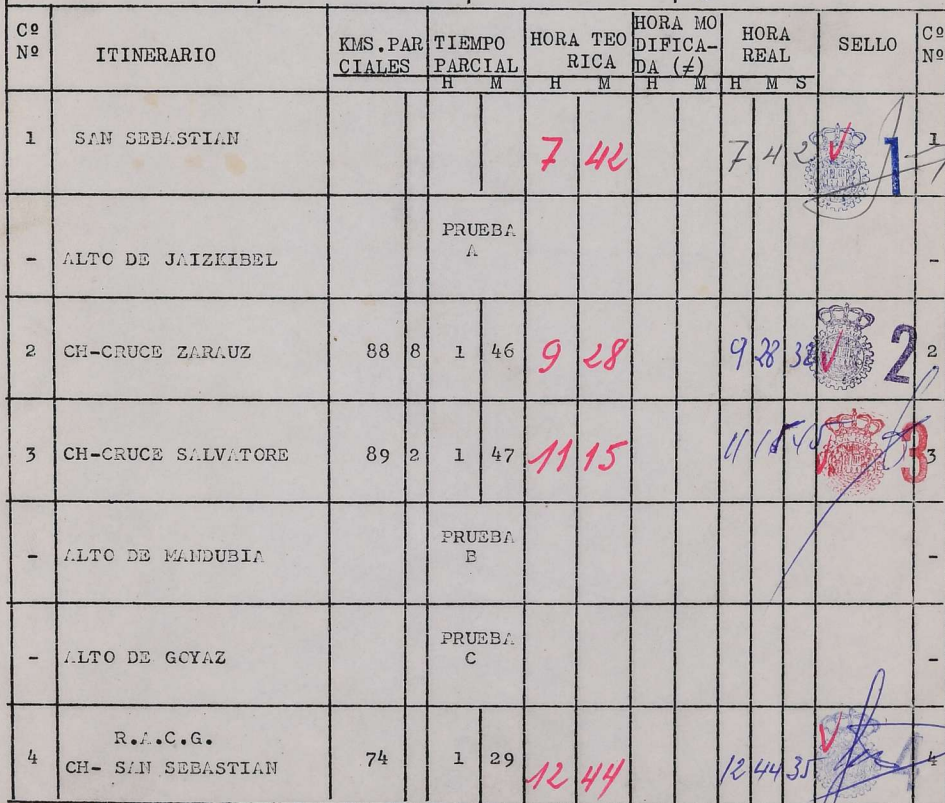 Cº Nº ITINERARIO KMS.PARCIALES TIEMPO PARCIAL HORA TEORICA HORA MODIFICADA (≠) HORA REAL SELLO Cº Nº
H M H M H M H M S
1 SAN SEBASTIAN 7 42 7 42 1 1
- ALTO DE JAIZKIBEL PRUEBA A -
2 CH-CRUCE ZARAUZ 88 8 1 46 9 28 9 28 38 2 2
3 CH-CRUCE SALVATORE 89 2 1 47 11 15 11 15 3 3
- ALTO DE MANDUBIA PRUEBA B -
- ALTO DE GOYAZ PRUEBA C -
R.A.C.G.
4 CH- SAN SEBASTIAN 74 1 29 12 44 12 44 35 4 4